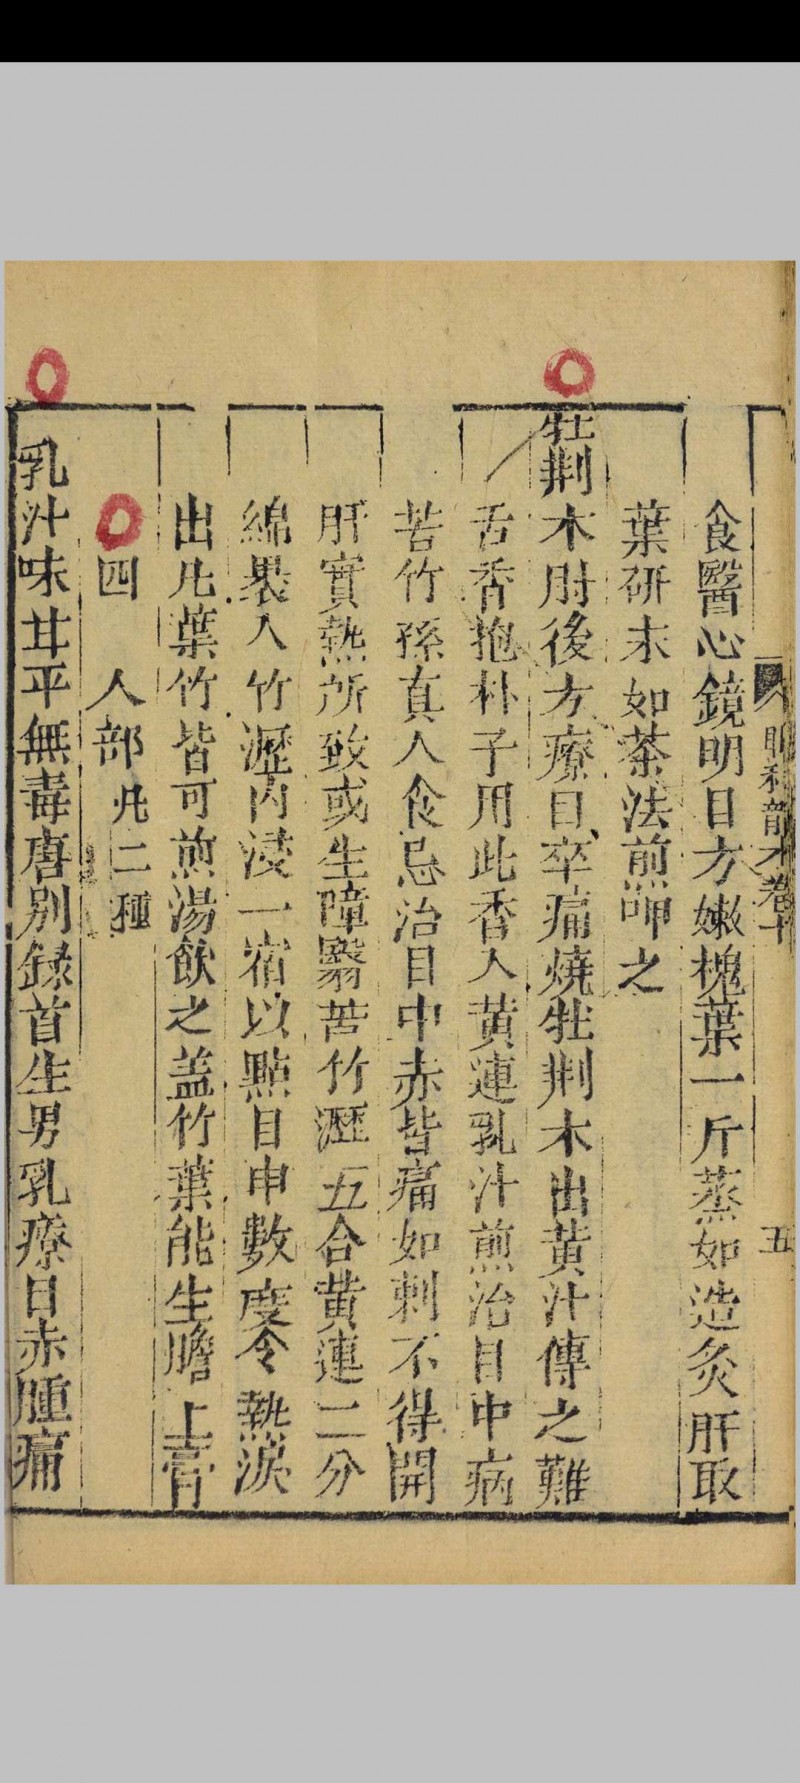 眼科龍木卷十
五
食醫心鏡明目方嫩槐葉一斤蒸如造炙肝取
葉研末如茶法煎呷之
牡荆木肘後方療目卒痛燒牡荆木出黄汁傳之難
舌香抱朴子用此香入黄連乳汁煎治目中病
苦竹孫真人食忌治目中赤眥痛如刺不得開
肝實熱所致或生障翳苦竹瀝五合黄連二分
綿褁入竹瀝内浸一宿以點目中數度令熱淚
出凡葉竹皆可煎湯飲之盖竹葉能生膽上膏
四 人部凡二種
乳汁味甘平無毒唐别録首生男乳療目赤腫痛